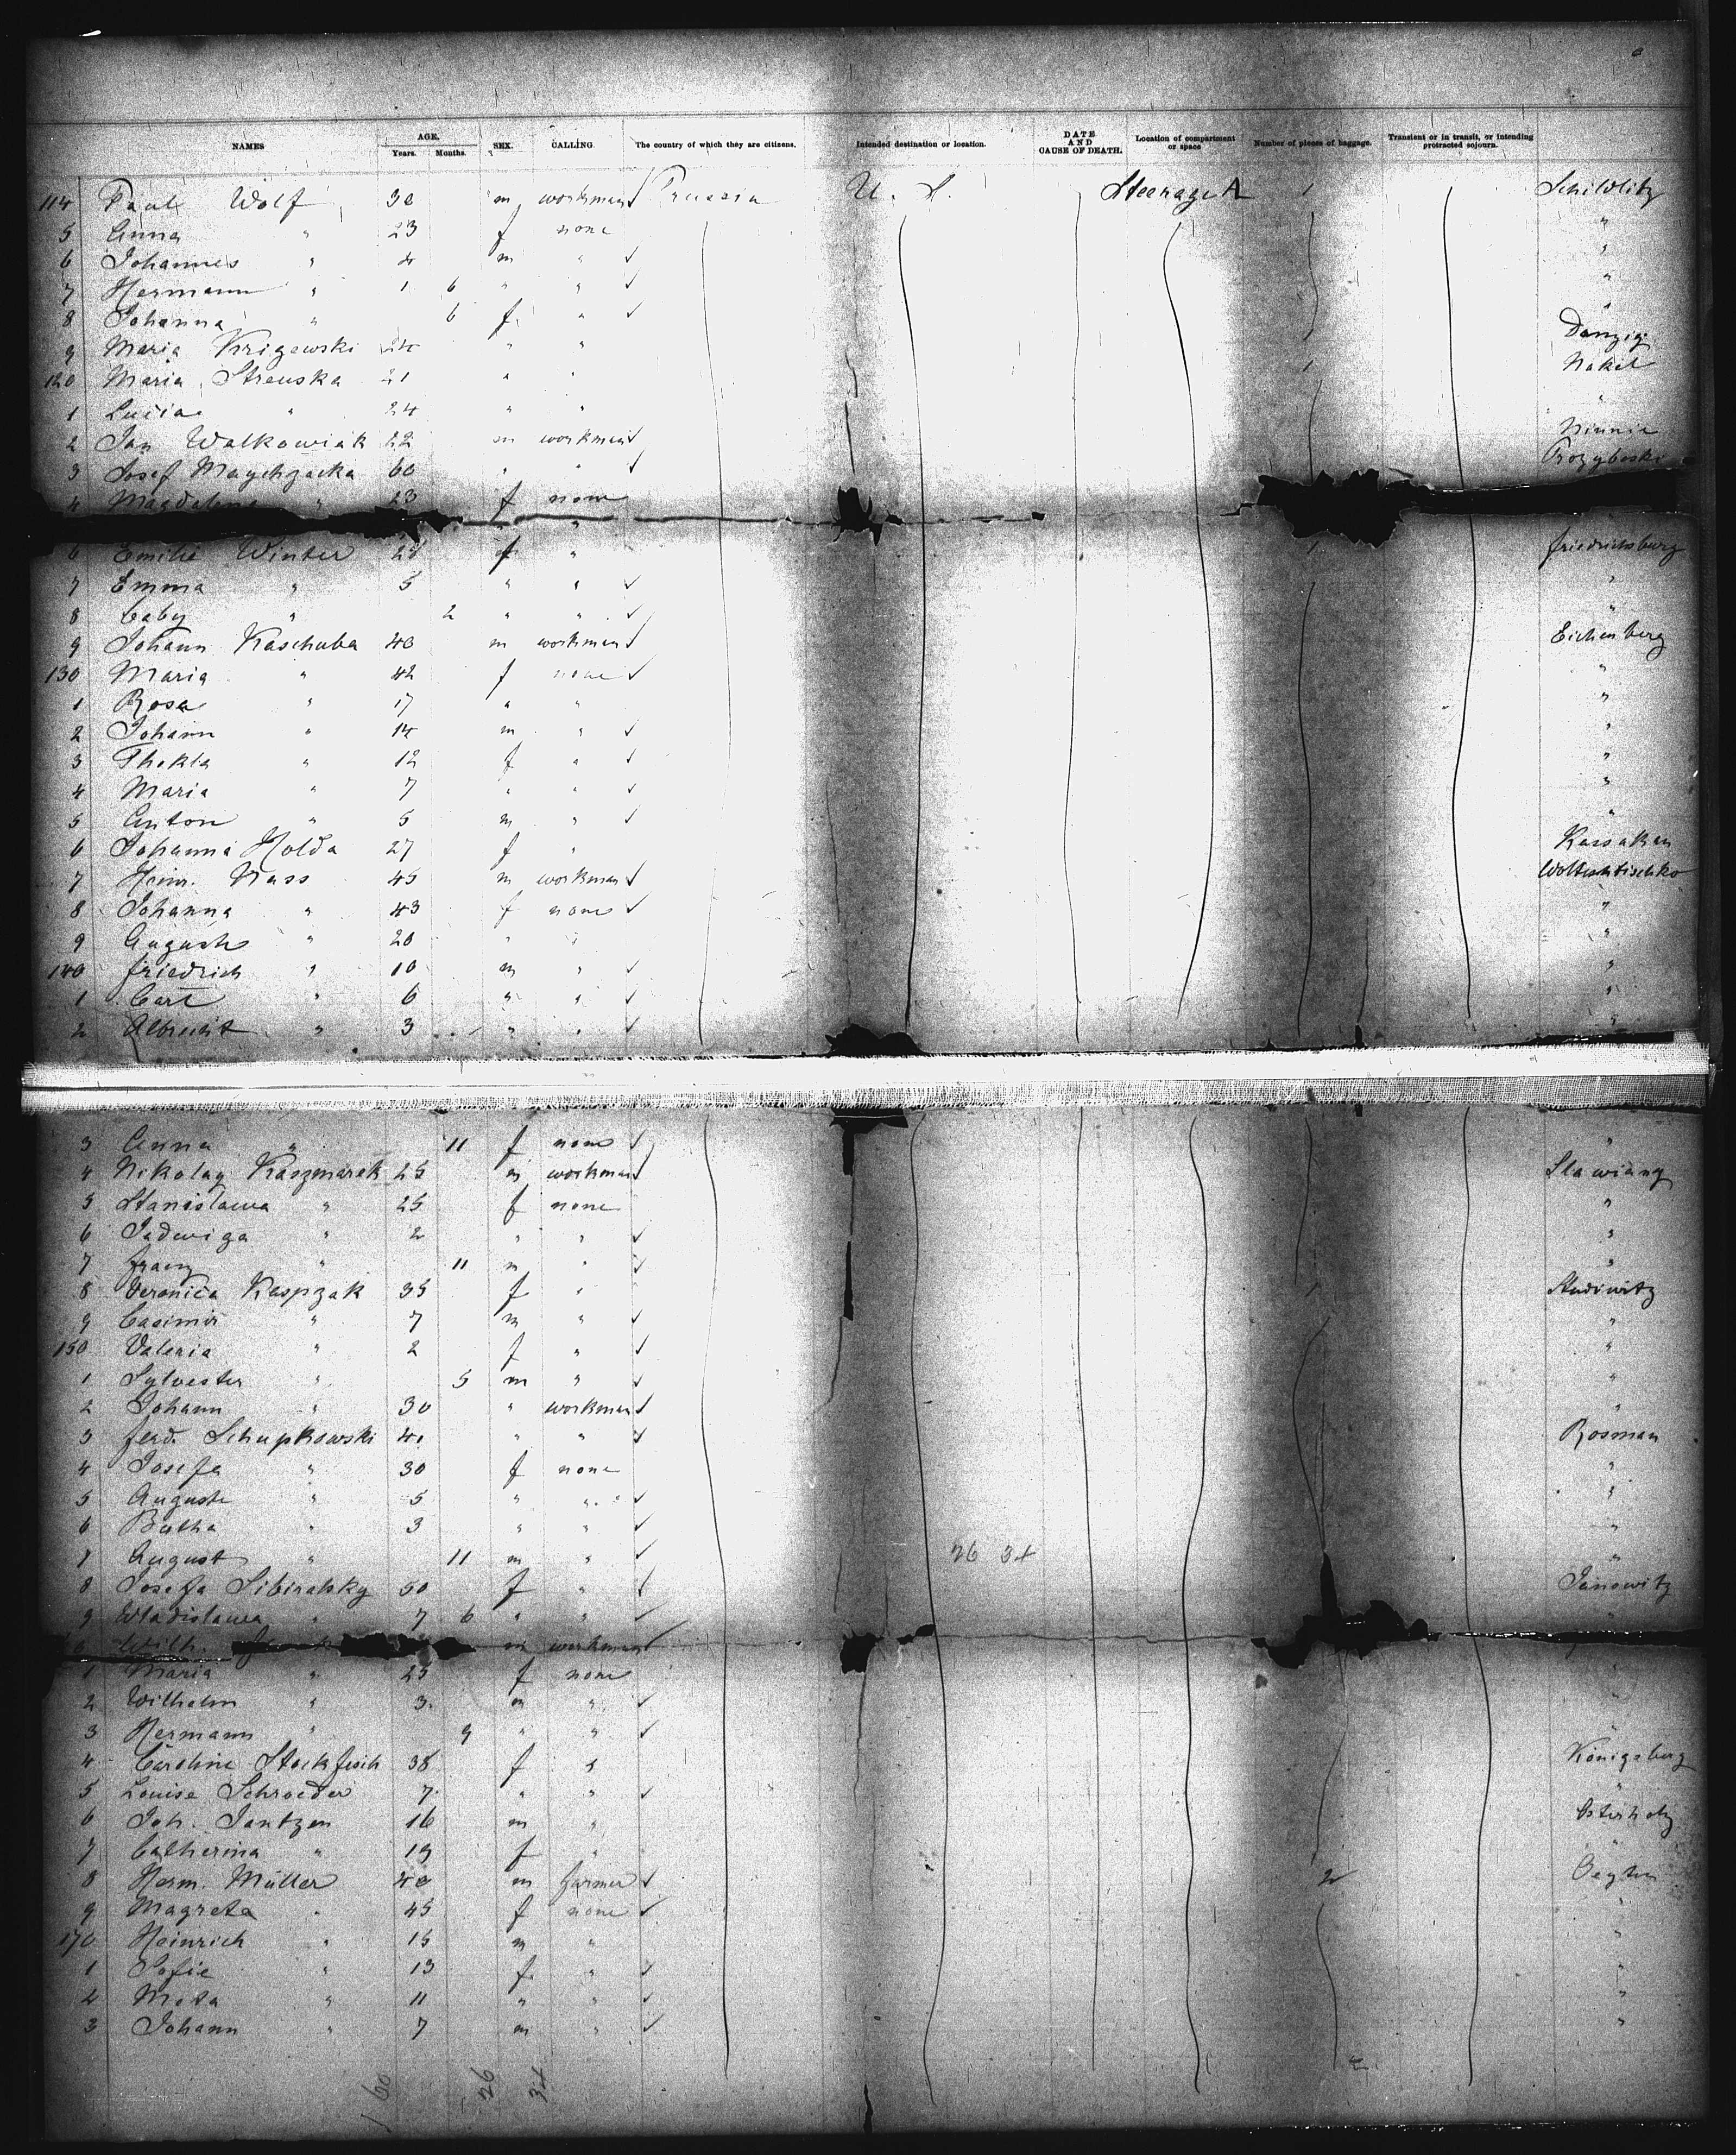 NAMES AGE. Years. Months. SEX. CALLING. The country of which they are citizens. Intended destination or location. DATE AND CAUSE OF DEATH. Location of compartment or space Number of pieces of baggage. Transient or in transit, or intending protracted sojourn.
114 Paul Wolf 30 m workman Prussia U. S. Steerage A 1 Schidlitz
5 Anna " 23 f none "
6 Johannes " 4 m " "
7 Hermann " 1 6 " " "
8 Johanna " 6 f " "
9 Maria Krigewski 24 " " Danzig
120 Maria Strenska 21 " " 1 Nakel
1 Lucia " 24 " " "
2 Jan Walkowiak 22 m workman
3 Josef 60 " "
4 Magdalena " 23 f none
"
6 Emilie Winter 28 f " 1 Friedrichsberg
7 Emma " 5 " " "
8 Baby " 2 " " "
9 Johann Kaschuba 40 m workman Eichenberg
130 Maria " 42 f none "
1 Rosa " 17 " " "
2 Johann " 14 m " "
3 Thekla " 12 f " "
4 Maria " 7 " " "
5 Anton " 5 m " "
6 Johanna Holda 27 f "
7 Heinr. Nass 45 m workman
8 Johanna " 43 f none "
9 Auguste " 20 " " "
140 Friedrich " 10 m " "
1 Carl " 6 " " "
2 Albrecht " 3 " " "
3 Anna " 11 f none "
4 Nikolay Kaszmarek 25 m workman
5 Stanislawa " 25 f none "
6 Jadwiga " 2 " " "
7 Franz " 11 m " "
8 Veronica Kaspzak 35 f " 1
9 Casimir " 7 m " "
150 Valeria " 2 f " "
1 Sylvester " 5 m " "
2 Johann " 30 " workman "
3 Ferd. Schupkowski " " Rosman
4 Josefa " 30 f none "
5 Auguste " 5 " " "
6 Bertha " 3 " " "
7 August " 11 m " 26 34 "
8 Josefa 50 f " Janowitz
9 Wladislawa " 7 6 " " "
Wilh. m workman
1 Maria " 25 f none "
2 Wilhelm " 3 m " "
3 Hermann " 9 " " "
4 Caroline Stockfisch 38 f " Königsberg
5 Louise Schroeder 7 " " "
6 Joh. Jantzen 16 m " Osterholz
7 Catherina " 19 f " "
8 Herm. Müller 40 m farmer 2
9 Magreta " 45 f none "
170 Heinrich " 15 m " "
1 Sofie " 13 f " "
2 Meta " 11 " " "
3 Johann " 7 m " "
60 26 34